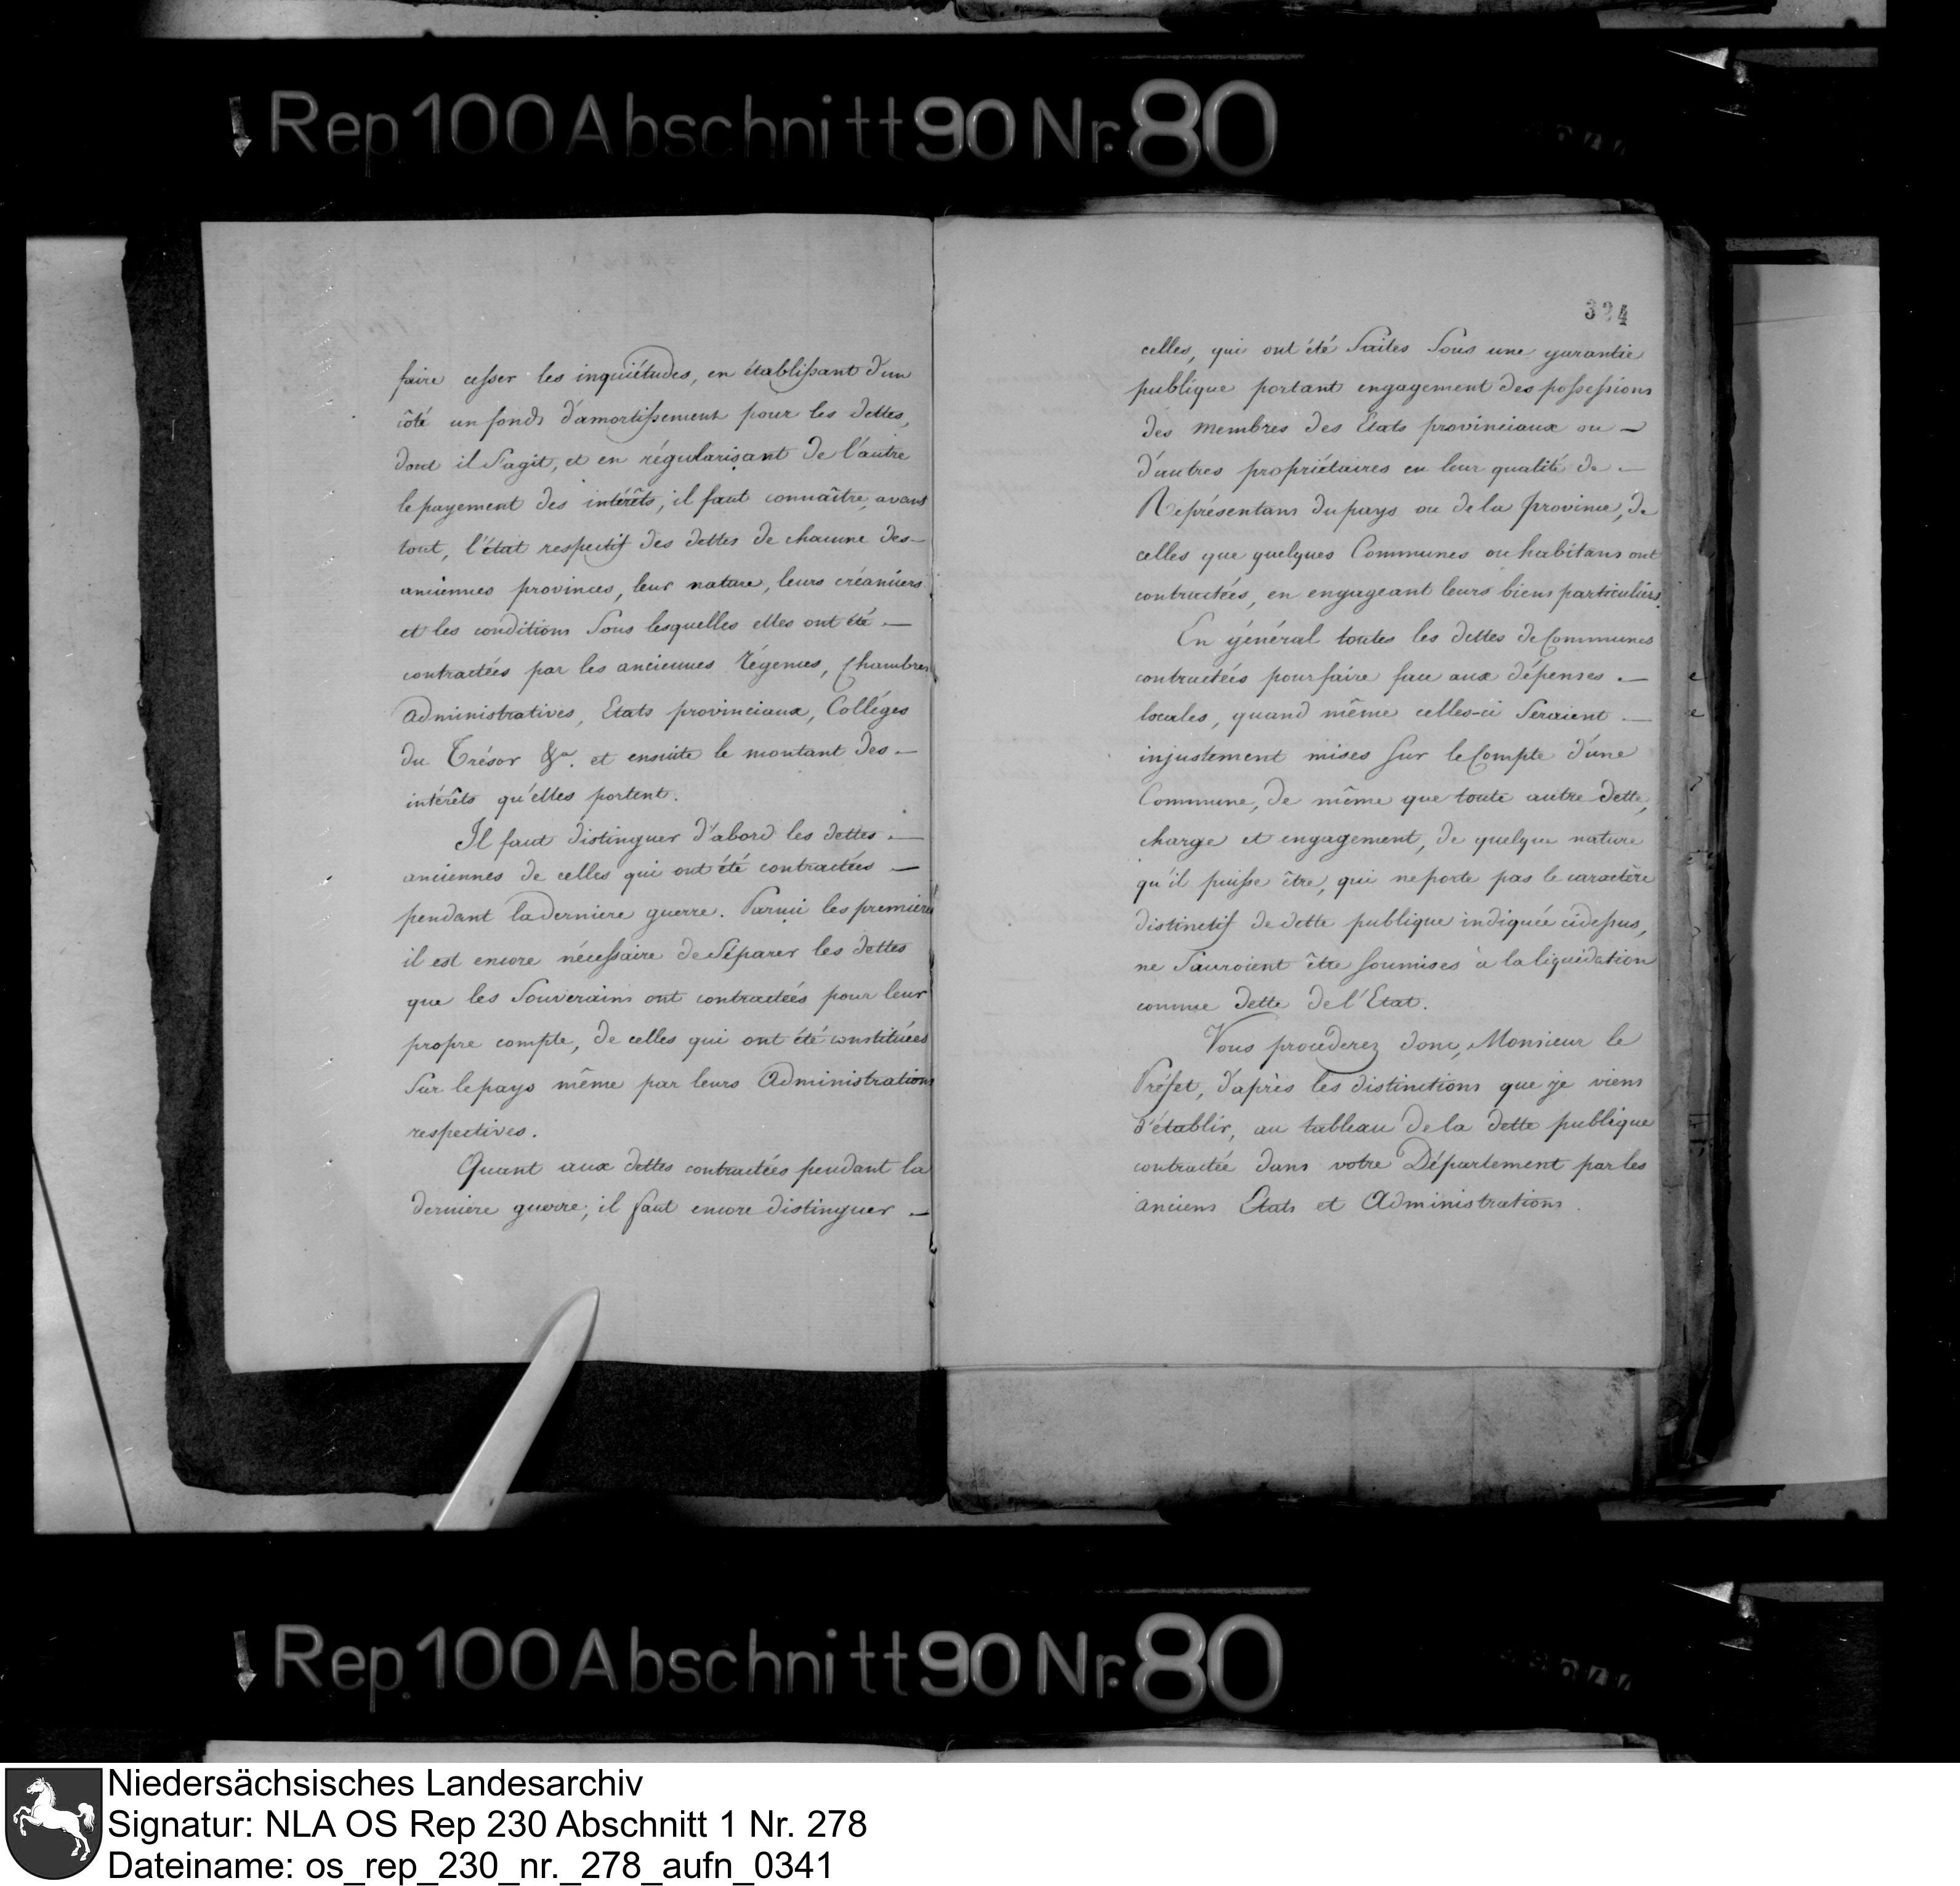 Rep 100 Abschnitt 90 Nr. 80
faire cesser les inquiétudes, en établissant d'un
côté un fonds d'amortissement pour les dettes,
dont il s'agit, et en régularisant de l'autre
le payement des intérêts, il faut connaître, avant
tout, l'état respectif des dettes de chacune des —
anciennes provinces, leur nature, leurs créanciers
et les conditions sous lesquelles elles ont été —
contractées par les anciennes Régences, Chambres
Administratives, Etats provinciaux, Colléges
du Trésor &a. et ensuite le montant des —
intérêts qu'elles portent.
Il faut distinguer d'abord les dettes —
anciennes de celles qui ont été contractées —
pendant la derniere guerre. Parmi les premières
il est encore nécessaire de séparer les dettes
que les Souverains ont contractées pour leur
propre compte, de celles qui ont été constituées
sur le pays même par leurs Administrations
respectives.
Quant aux dettes contractées pendant la
dernière guerre, il faut encore distinguer —
324
celles, qui ont été faites sous une garantie
publique portant engagement des possessions
des membres des Etats provinciaux ou —
d'autres propriétaires en leur qualité de —
Représentans du pays ou de la province, de
celles que quelques Communes ou habitans ont
contractées, en engageant leurs biens particuliers.
En général toutes les dettes de Communes
contractées pour faire face aux dépenses —
locales, quand même celles-ci seraient —
injustement mises sur le Compte d'une
Commune, de même que toute autre dette,
charge et engagement, de quelque nature
qu'il puisse être, qui ne porte pas le caractère
distinctif de dette publique indiquée cidessus,
ne sauroient être soumises à la liquidation
comme dette de l'Etat.
Vous procéderez donc, Monsieur le
Préfet, d'après les distinctions que je viens
d'établir, au tableau de la dette publique
contractée dans votre Département par les
anciens Etats et Administrations.
Rep. 100 Abschnitt 90 Nr. 80
Niedersächsisches Landesarchiv
Signatur: NLA OS Rep 230 Abschnitt 1 Nr. 278
Dateiname: os_rep_230_nr._278_aufn_0341